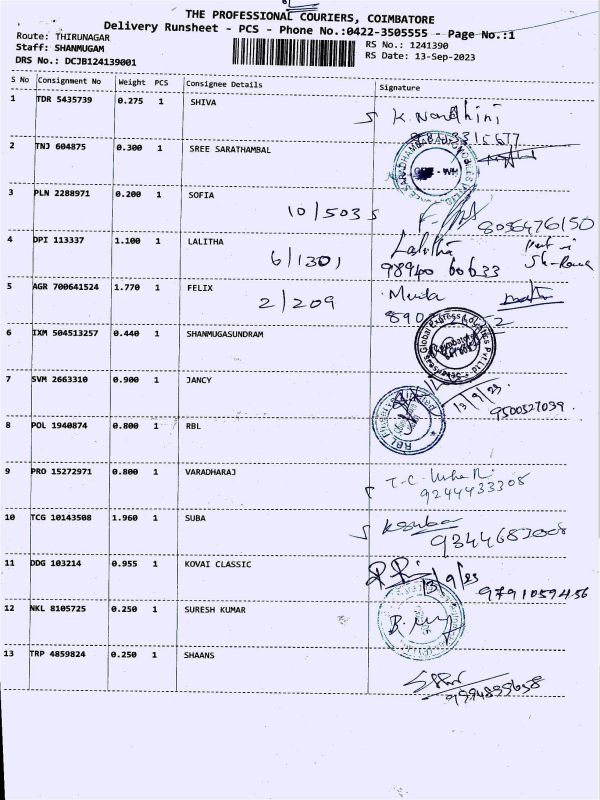 THE PROFESSIONAL COURIERS, COIMBATORE
Delivery Runsheet - PCS - Phone No.:0422-3505555 - Page No.:1
Route: THIRUNAGAR
Staff: SHANMUGAM
DRS No.: DCJB124139001
RS No.: 1241390
RS Date: 13-Sep-2023
S No Consignment No Weight PCS Consignee Details Signature
1 TDR 5435739 0.275 1 SHIVA
K. Nandhini
2 TNJ 604875 0.300 1 SREE SARATHAMBAL
3 PLN 2288971 0.200 1 SOFIA
10/5035
8056476150
4 DPI 113337 1.100 1 LALITHA
6/1301
Lalitha
98940 60633
5 AGR 700641524 1.770 1 FELIX
2/209
6 IXM 504513257 0.440 1 SHANMUGASUNDRAM
Global Express Logistics Pvt Ltd
7 SVM 2663310 0.900 1 JANCY
13/9/23
9500527039.
8 POL 1940874 0.800 1 RBL
RBL
9 PRO 15272971 0.800 1 VARADHARAJ
9244433305
10 TCG 10143508 1.960 1 SUBA
K Suba
11 DDG 103214 0.955 1 KOVAI CLASSIC
13/9/23
9791059456
12 NKL 8105725 0.250 1 SURESH KUMAR
13 TRP 4859824 0.250 1 SHAANS